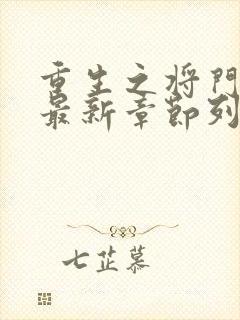 重生之将门
最新章节列
七芷慕